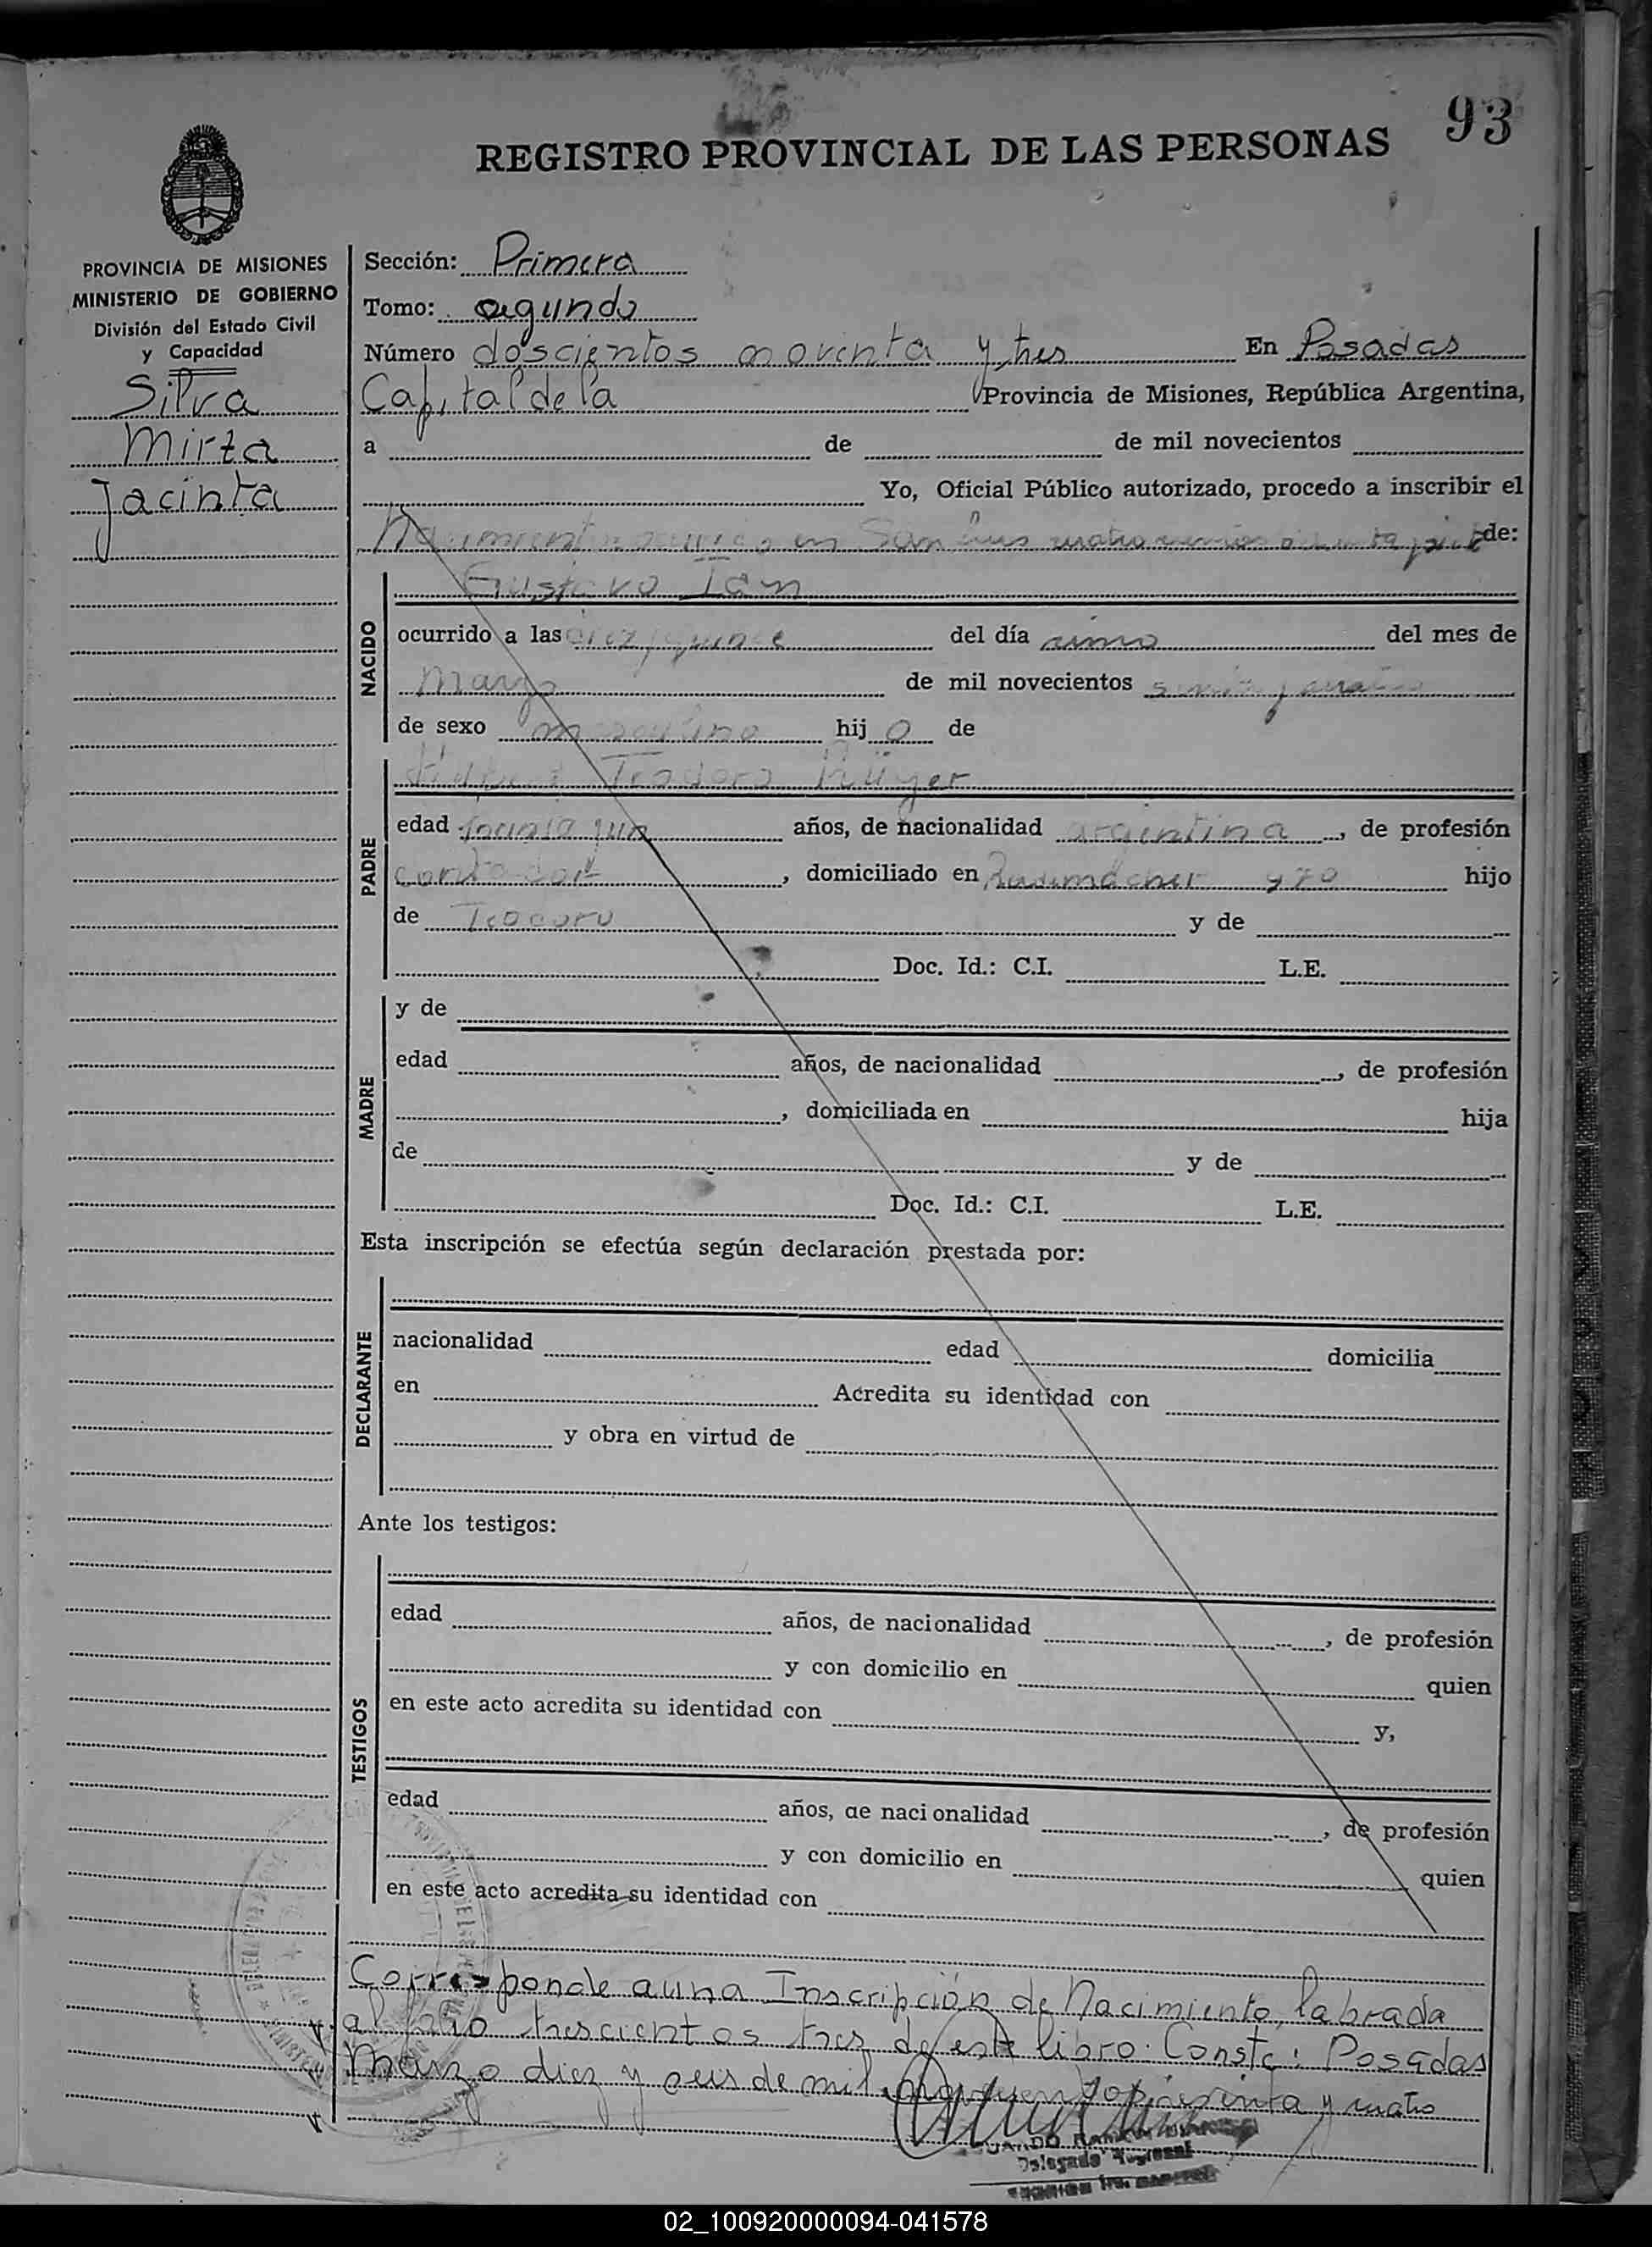 93
REGISTRO PROVINCIAL DE LAS PERSONAS
PROVINCIA DE MISIONES
MINISTERIO DE GOBIERNO
División del Estado Civil
y Capacidad
Silva
Mirta
Jacinta
Sección: Primera
Tomo: segundo
Número doscientos noventa y tres En Posadas
Capital de la Provincia de Misiones, República Argentina,
a de de mil novecientos
Yo, Oficial Público autorizado, procedo a inscribir el
Nacimiento ocurrido en San Luis cuatrocientos ochenta y siete de:
Gustavo Ian
NACIDO
ocurrido a las diez y quince del día del mes de
Marzo de mil novecientos sesenta y cuatro
de sexo masculino hijo de
Teodoro
PADRE
edad treinta años, de nacionalidad argentina, de profesión
contador, domiciliado en 970 hijo
de Teodoro y de
Doc. Id.: C.I. L.E.
y de
MADRE
edad años, de nacionalidad , de profesión
, domiciliada en hija
de y de
Doc. Id.: C.I. L.E.
Esta inscripción se efectúa según declaración prestada por:
DECLARANTE
nacionalidad edad domicilia
en Acredita su identidad con
y obra en virtud de
Ante los testigos:
TESTIGOS
edad años, de nacionalidad , de profesión
y con domicilio en quien
en este acto acredita su identidad con y,
edad años, de nacionalidad , de profesión
y con domicilio en quien
en este acto acredita su identidad con
Corresponde a una Inscripción de Nacimiento, labrada
al folio trescientos tres de este libro. Conste: Posadas
Marzo diez y seis de mil novecientos sesenta y cuatro
Delegado Regional
02_100920000094-041578